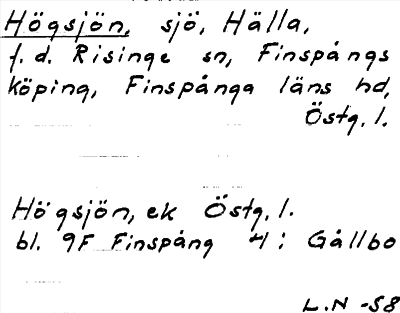 Högsjön, sjö, Hälla,
f.d. Risinge sn, Finspångs
köping, Finspånga läns hd,
Östg. l.
Högsjön, ek Östg. l.
bl. 9F Finspång 4i Gållbo
L.N -58